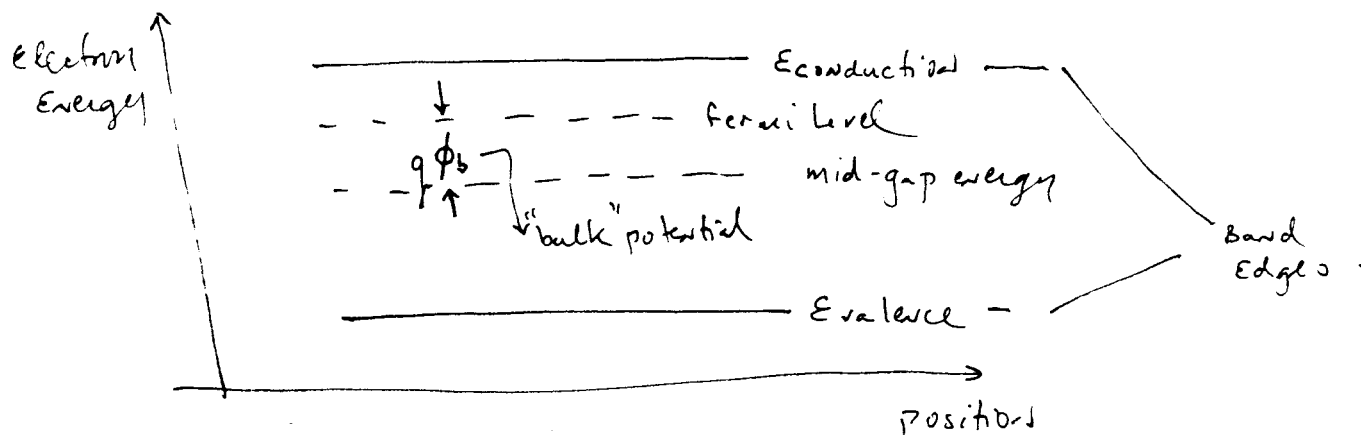 Electron
Energy
Econduction
fermi level
qϕb
mid-gap energy
"bulk" potential
Band
Edges
Evalence
position